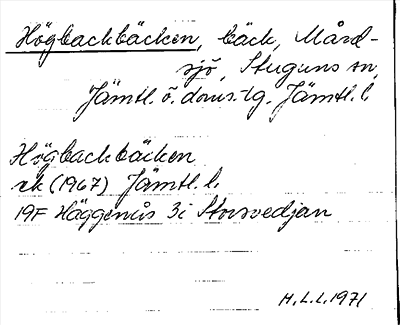 Högbackbäcken, bäck, Mård-
sjö, Stuguns sn,
Jämtl. ö. doms-lg. Jämtl. l.
Högbackbäcken
rk (1967) Jämtl. l.
19F Häggenås 3i Storsvedjan
H.L.L. 1971